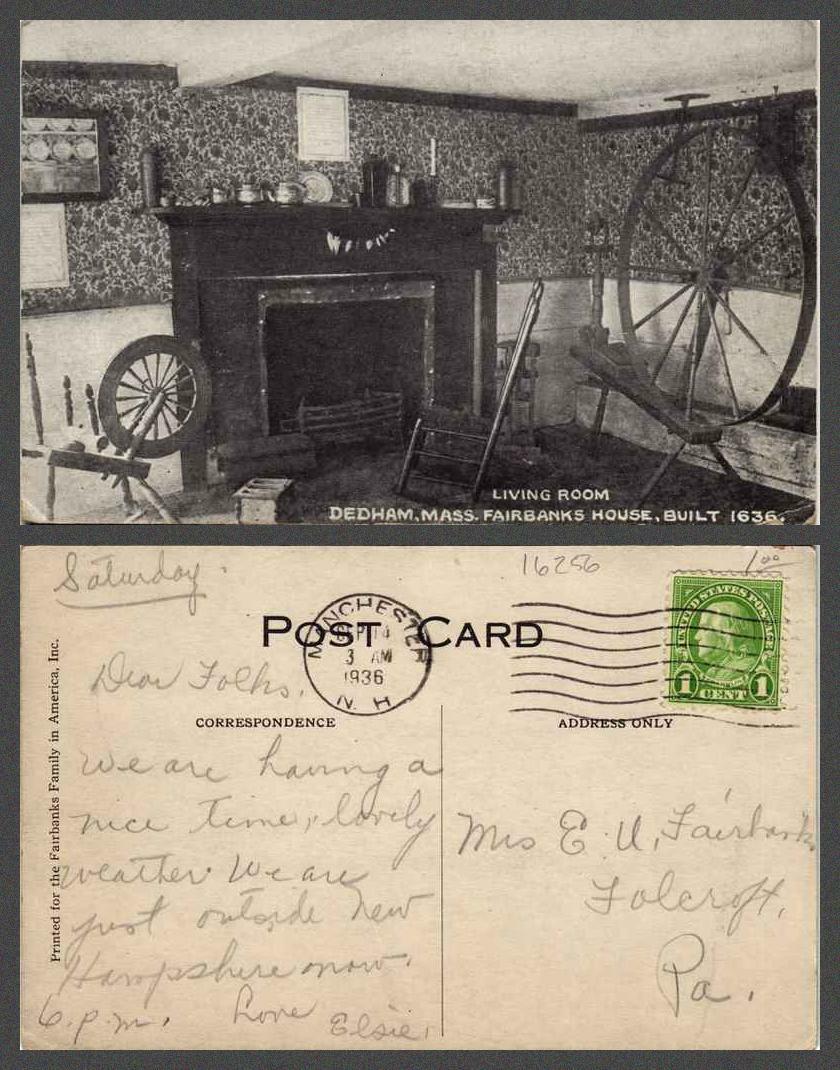 LIVING ROOM
DEDHAM, MASS. FAIRBANKS HOUSE, BUILT 1636.
Saturday.
16256
1.00
POST CARD
MANCHESTER
SEP 14
3 AM
1936
N. H.
UNITED STATES POSTAGE
1 CENT 1
Dear Folks,
CORRESPONDENCE
ADDRESS ONLY
Printed for the Fairbanks Family in America, Inc.
We are having a
nice time, lovely
weather. We are
just outside New
Hampshire now.
6. p. m. Love Elsie.
Mrs E. U. Fairbanks
Folcroft,
Pa.